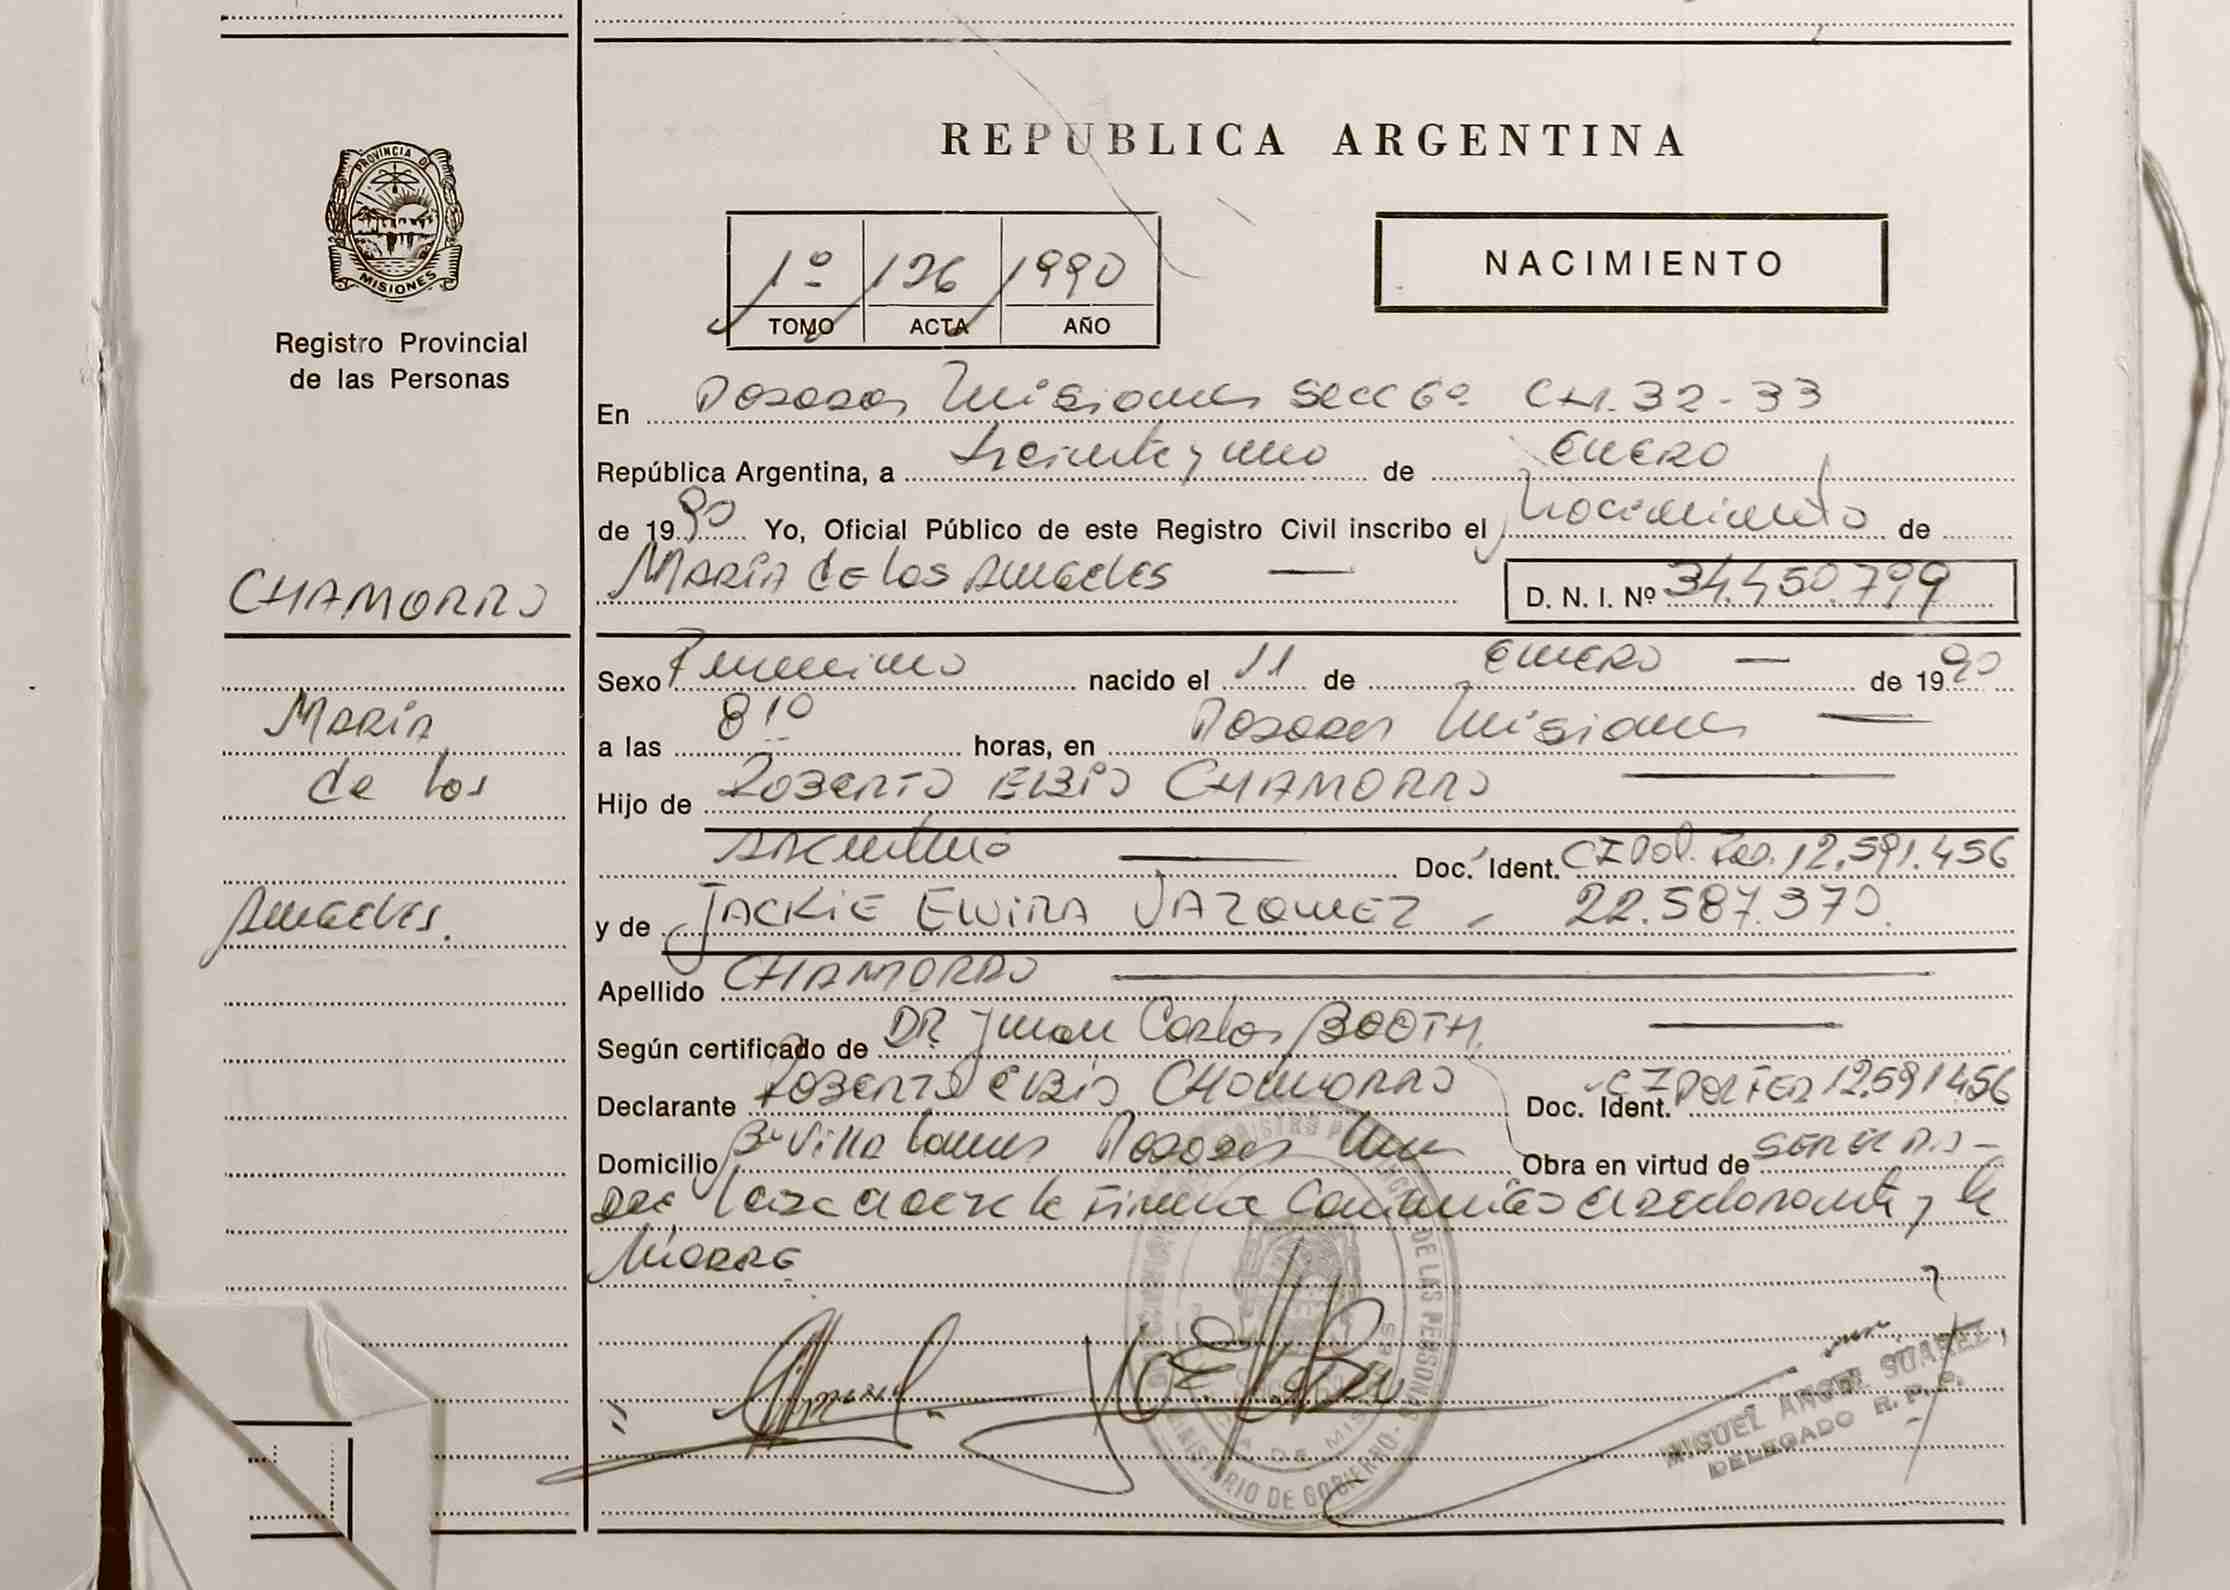 PROVINCIA DE
MISIONES
Registro Provincial
de las Personas
CHAMORRO
MARÍA
de los
Angeles.
REPUBLICA ARGENTINA
1º 126 1990
TOMO ACTA AÑO
NACIMIENTO
En Posadas Misiones Secc 6º CH. 32-33
República Argentina, a treinta y uno de ENERO
de 1990 Yo, Oficial Público de este Registro Civil inscribo el Nacimiento de
MARÍA de los Angeles —
D. N. I. Nº 34.450.799
Sexo Femenino nacido el 11 de ENERO — de 1990
a las 8 10 horas, en Posadas Misiones —
Hijo de ROBERTO ELBIO CHAMORRO —
Argentino — Doc. Ident. CI Pol. Fed. 12.591.456
y de JACKIE ELVIRA VAZQUEZ - 22.587.370.
Apellido CHAMORRO —
Según certificado de DR. Juan Carlos BOOTH. —
Declarante ROBERTO ELBIO CHAMORRO Doc. Ident. CI POL FED 12.591456
Domicilio Bº Villa Posadas Mnes Obra en virtud de SER EL PA-
DRE la firma el declarante y la
Madre
MINISTERIO DE GOBIERNO
DE LAS PERSONAS
MIGUEL ANGEL SUAREZ
DELEGADO R. P. P.